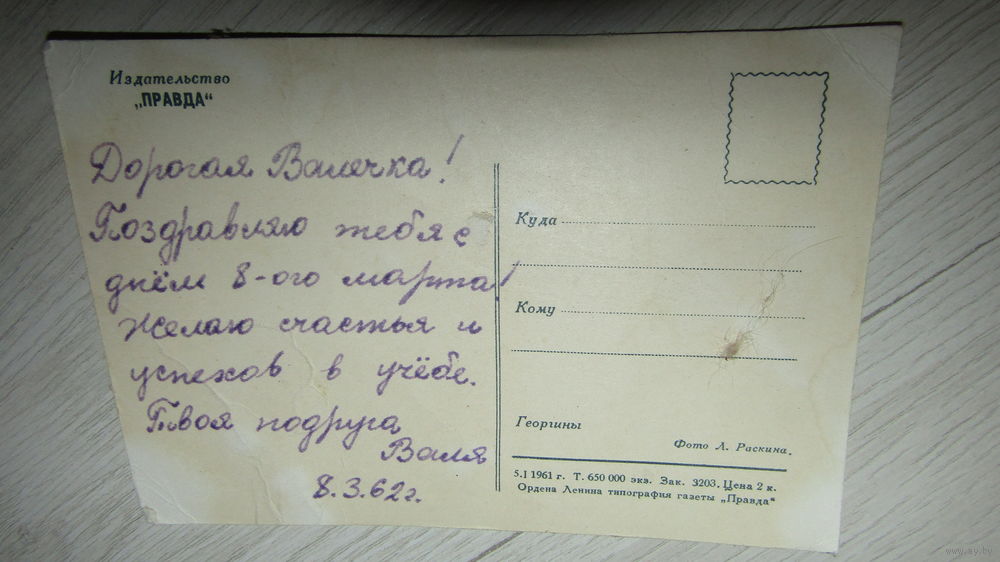 Издательство
„ПРАВДА“
Дорогая Валечка!
Поздравляю тебя с
днём 8-ого марта!
Желаю счастья и
успехов в учёбе.
Твоя подруга
Валя
8.3.62г.
Куда
Кому
Георгины
Фото Л. Раскина.
5.I 1961 г. Т. 650 000 экз. Зак. 3203. Цена 2 к.
Ордена Ленина типография газеты „Правда“
www.ay.by